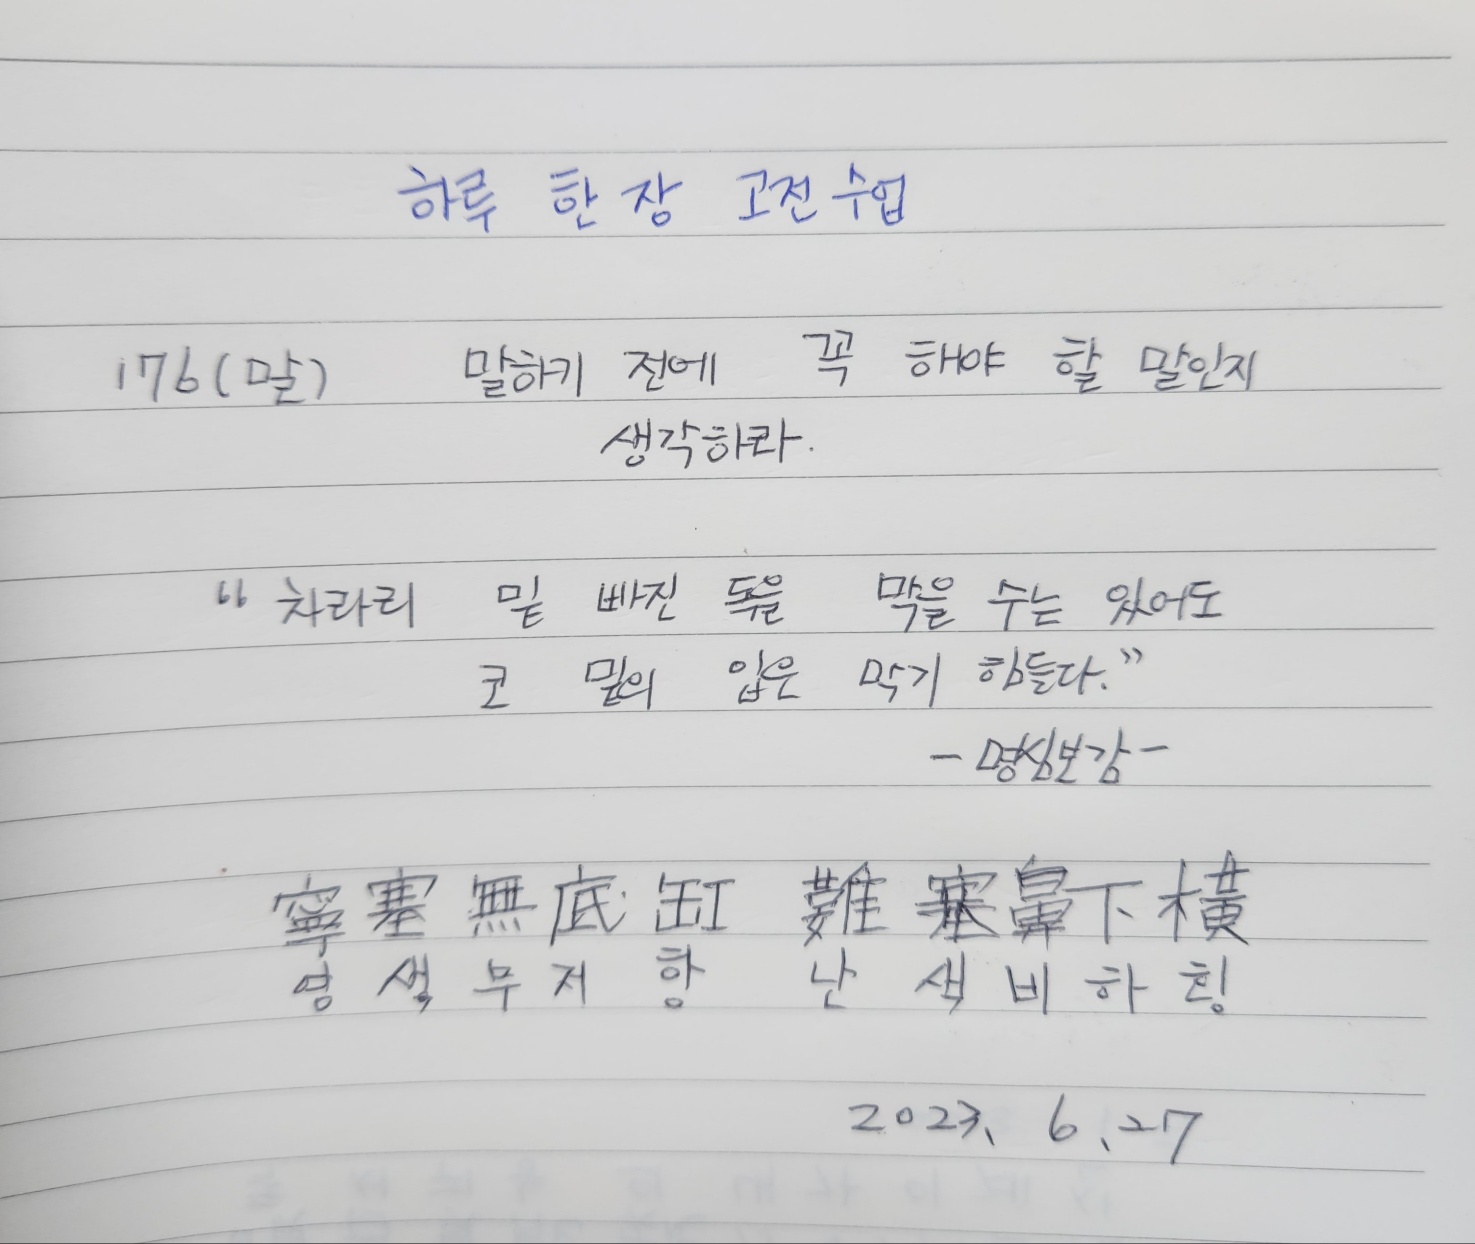 하루 한 장 고전 수업
176(말) 말하기 전에 꼭 해야 할 말인지
생각하라.
“차라리 밑 빠진 독을 막을 수는 있어도
코 밑의 입은 막기 힘들다.”
-명심보감-
寧塞無底缸 難塞鼻下橫
영색무저항 난색비하횡
2023. 6. 27